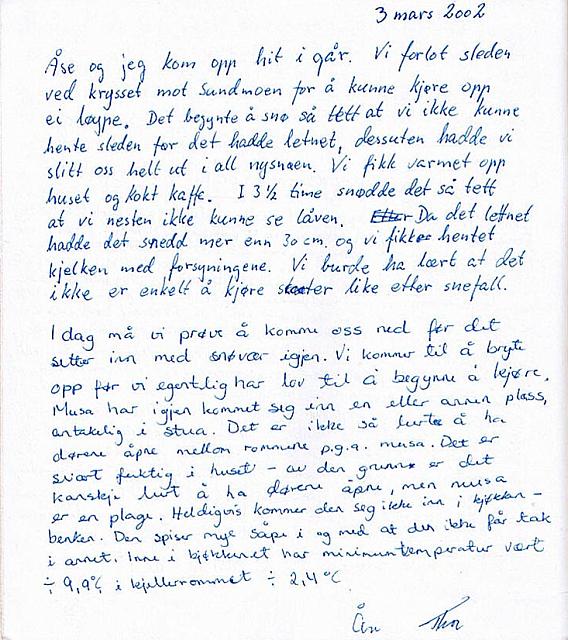 3 mars 2002
Åse og jeg kom opp hit i går. Vi forlot sleden
ved krysset mot Sundmoen for å kunne kjøre opp
ei løype. Det begynte å snø så tett at vi ikke kunne
hente sleden før det hadde letnet, dessuten hadde vi
slitt oss helt ut i all nysnøen. Vi fikk varmet opp
huset og kokt kaffe. I 3½ time snødde det så tett
at vi nesten ikke kunne se låven. Etter Da det lettnet
hadde det snødd mer enn 30 cm. og vi fikk hentet
kjelken med forsyningene. Vi burde ha lært at det
ikke er enkelt å kjøre scooter like etter snefall.
I dag må vi prøve å komme oss ned før det
setter inn med snøvær igjen. Vi kommer til å bryte
opp før vi egentlig har lov til å begynne å kjøre.
Musa har igjen kommet seg inn en eller annen plass,
antakelig i stua. Det er ikke så lurt å ha
dørene åpne mellom rommene p.g.a. musa. Det er
svært fuktig i huset - av den grunn er det
kanskje lurt å ha dørene åpne, men musa
er en plage. Heldigvis kommer den seg ikke inn i kjøkken-
benken. Den spiser mye såpe i og med at den ikke får tak
i annet. Inne i kjøkkenet har minimumtemperatur vært
÷ 9,9°C i kjellerrommet ÷ 2,4°C